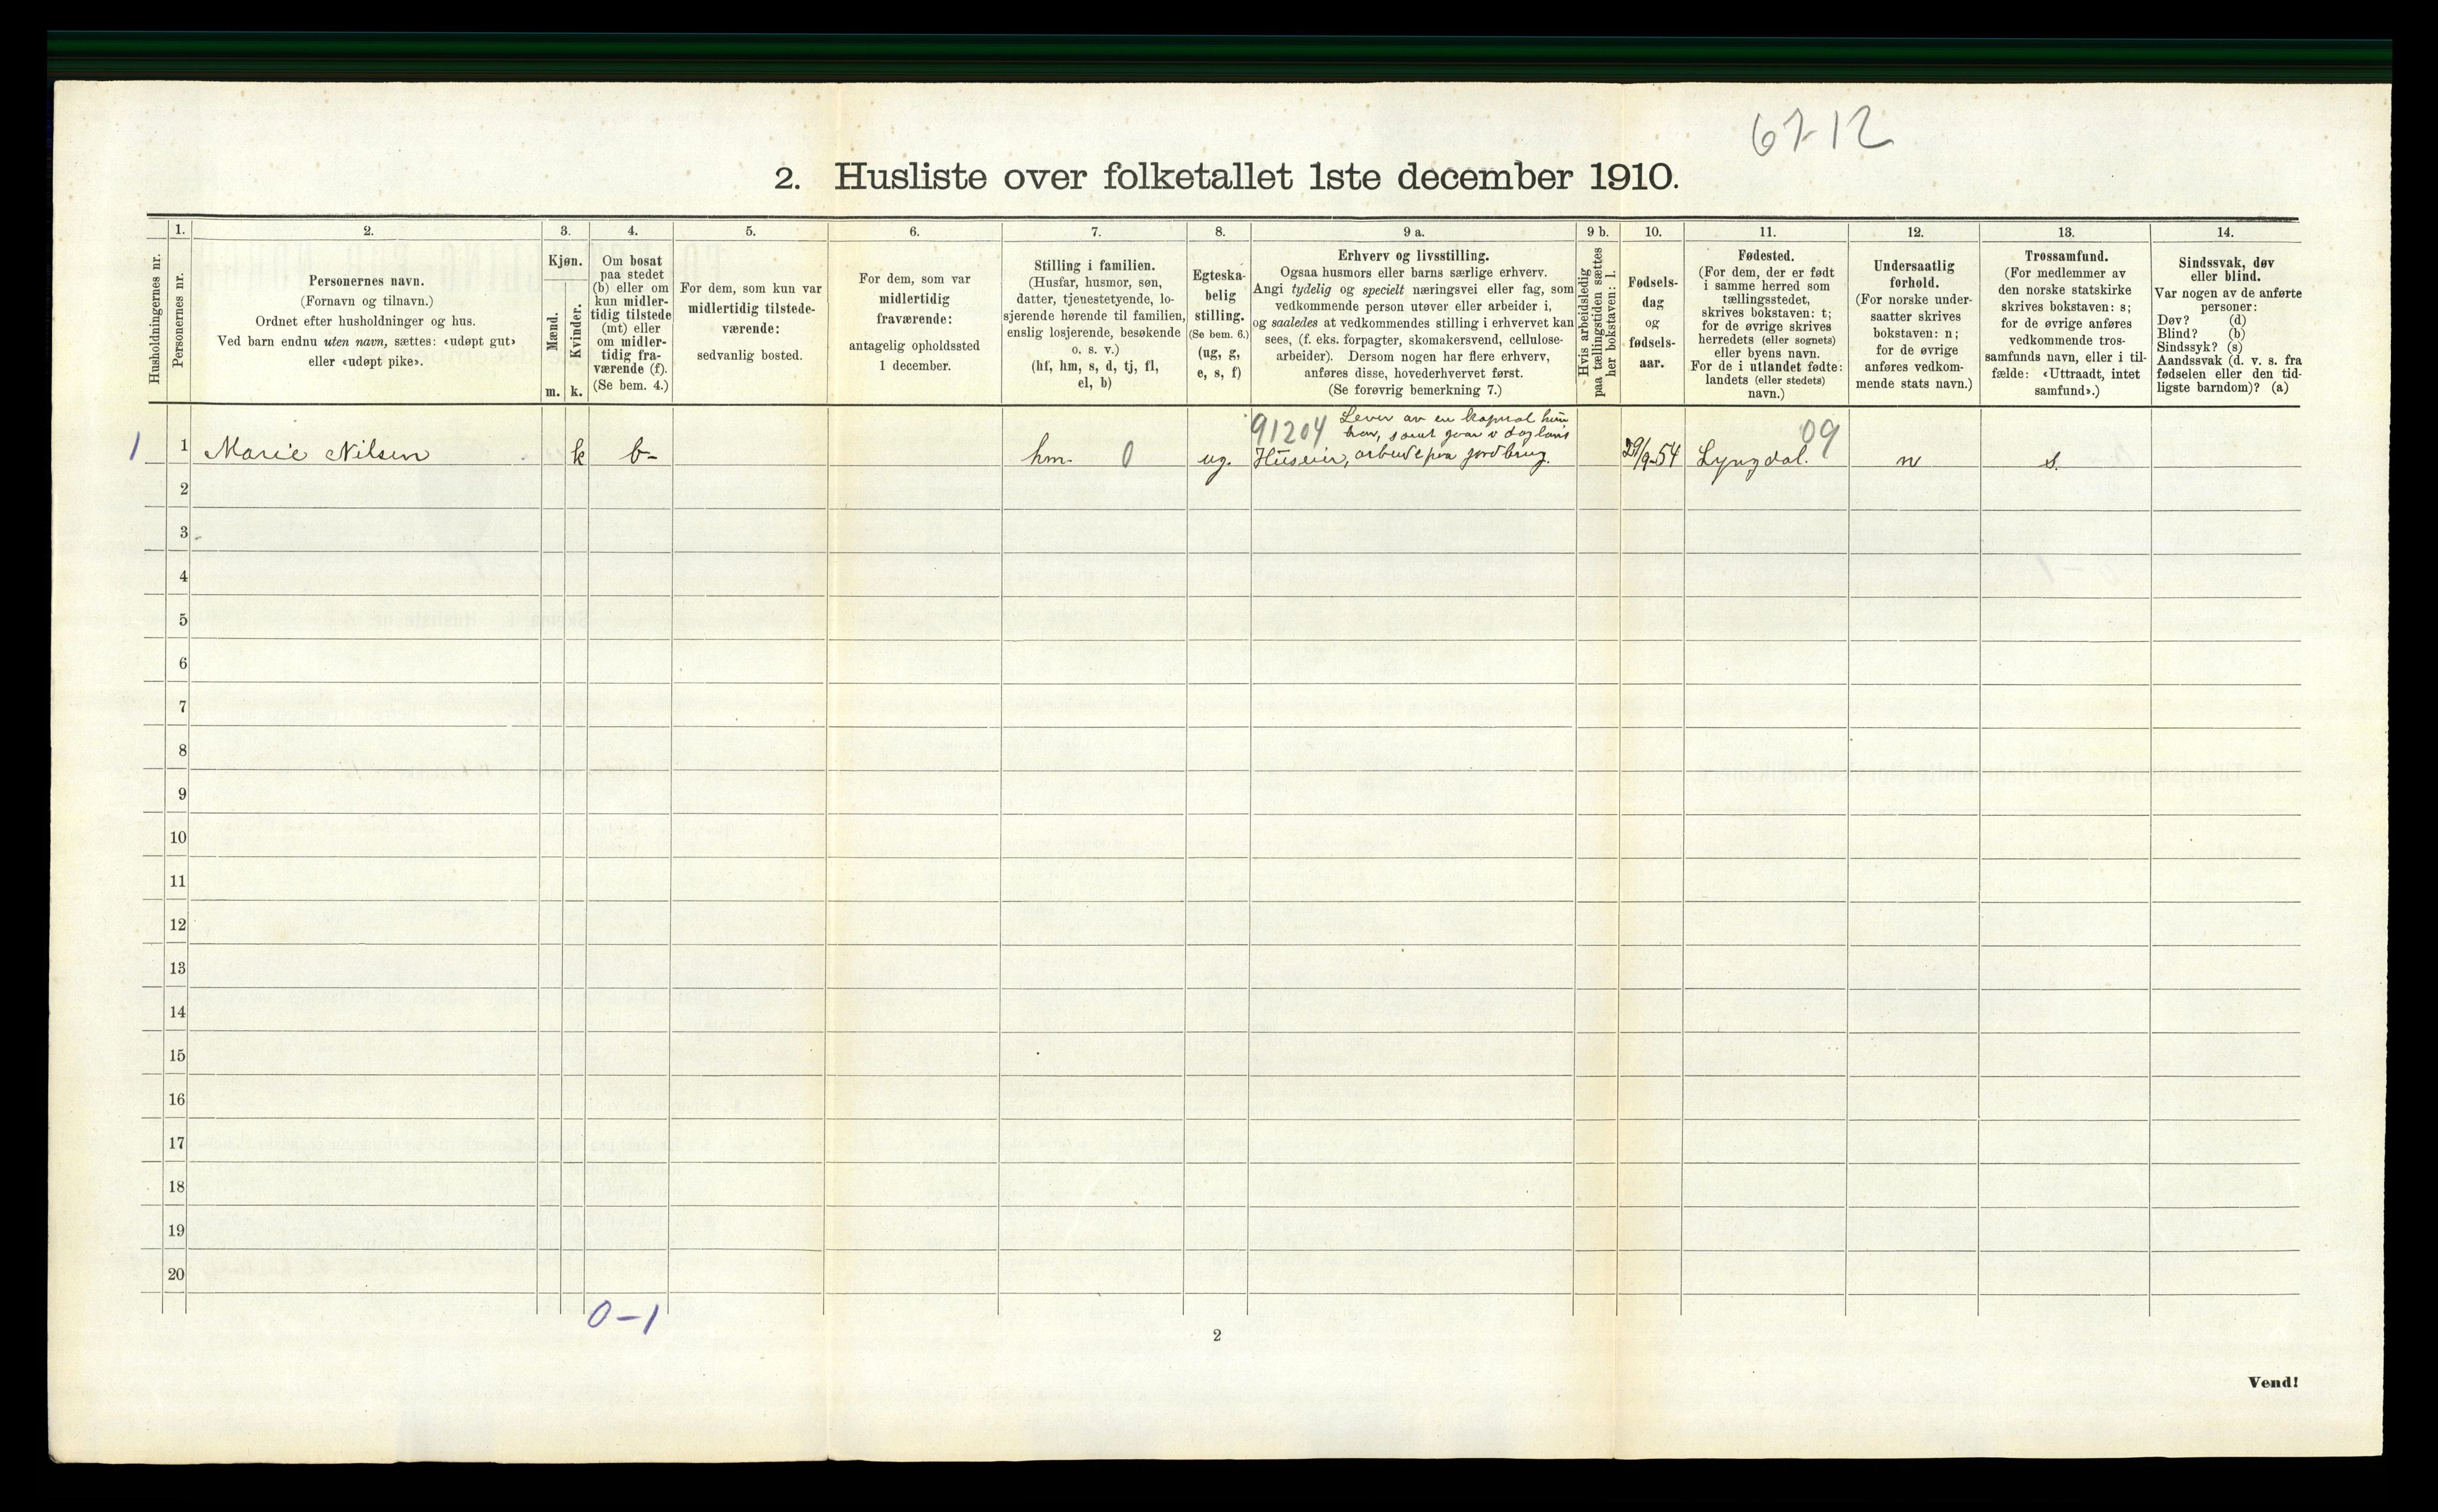 67-12
2. Husliste over folketallet 1ste december 1910.
Husholdningernes nr.
1.
Personernes nr.
2.
Personernes navn.
(Fornavn og tilnavn.)
Ordnet efter husholdninger og hus.
Ved barn endnu uten navn, sættes: «udøpt gut»
eller «udøpt pike».
3.
Kjøn.
Mænd.
Kvinder.
m. k.
4.
Om bosat
paa stedet
(b) eller om
kun midler-
tidig tilstede
(mt) eller
om midler-
tidig fra-
værende (f).
(Se bem. 4.)
5.
For dem, som kun var
midlertidig tilstede-
værende:
sedvanlig bosted.
6.
For dem, som var
midlertidig
fraværende:
antagelig opholdssted
1 december.
7.
Stilling i familien.
(Husfar, husmor, søn,
datter, tjenestetyende, lo-
sjerende hørende til familien,
enslig losjerende, besøkende
o. s. v.)
(hf, hm, s, d, tj, fl,
el, b)
8.
Egteska-
belig
stilling.
(Se bem. 6.)
(ug, g,
e, s, f)
9 a.
Erhverv og livsstilling.
Ogsaa husmors eller barns særlige erhverv.
Angi tydelig og specielt næringsvei eller fag, som
vedkommende person utøver eller arbeider i,
og saaledes at vedkommendes stilling i erhvervet kan
sees, (f. eks. forpagter, skomakersvend, cellulose-
arbeider). Dersom nogen har flere erhverv,
anføres disse, hovederhvervet først.
(Se forøvrig bemerkning 7.)
9 b.
Hvis arbeidsledig
paa tællingstiden sættes
her bokstaven: l.
10.
Fødsels-
dag
og
fødsels-
aar.
11.
Fødested.
(For dem, der er født
i samme herred som
tællingsstedet,
skrives bokstaven: t;
for de øvrige skrives
herredets (eller sognets)
eller byens navn.
For de i utlandet fødte:
landets (eller stedets)
navn.)
12.
Undersaatlig
forhold.
(For norske under-
saatter skrives
bokstaven: n;
for de øvrige
anføres vedkom-
mende stats navn.)
13.
Trossamfund.
(For medlemmer av
den norske statskirke
skrives bokstaven: s;
for de øvrige anføres
vedkommende tros-
samfunds navn, eller i til-
fælde: «Uttraadt, intet
samfund».)
14.
Sindssvak, døv
eller blind.
Var nogen av de anførte
personer:
Døv? (d)
Blind? (b)
Sindssyk? (s)
Aandssvak (d. v. s. fra
fødselen eller den tid-
ligste barndom)? (a)
91204 Lever av en kapital hun
har, samt gaar i daglønt
09
1 1 Marie Nilsen k b- hm. 0 ug. Huseier, arbeide paa jordbrug. 29/9-54 Lyngdal. n s.
2
3
4
5
6
7
8
9
10
11
12
13
14
15
16
17
18
19
20
0-1
2
Vend!